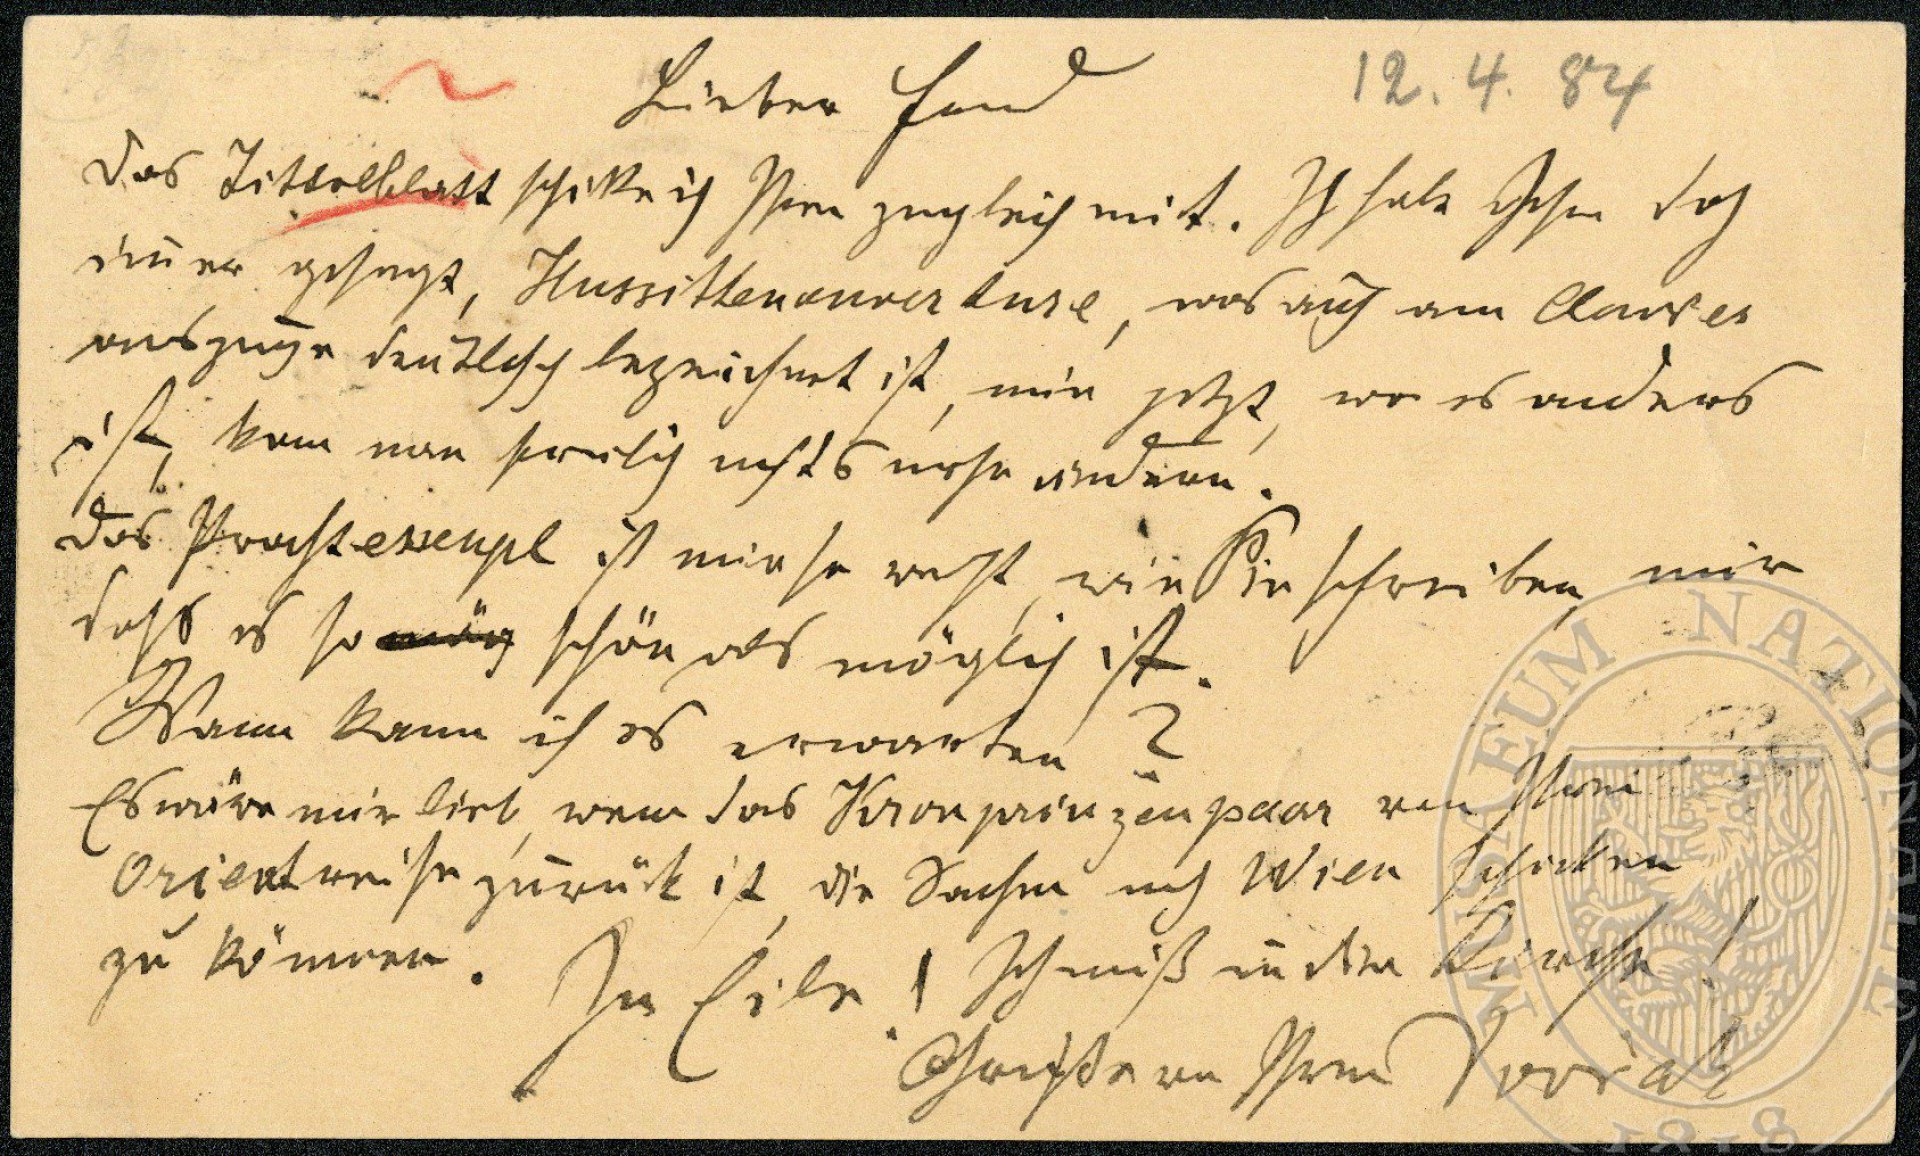 12.4.84
Lieber Freund
Das Titselblatt schikke ich Ihnen zugleich mit. Ich habe Ihnen doch
im̄er gesagt, Hussittenouverture, was auch am Clavier
auszuge deutlich bezeichnet ist, nun jetzt, wo es anders
ist, kann man freilich nichts mehr ändern.
Das Prachtexempl ist mir so recht, wie Sie schreiben, nur
daß es so schön als möglich ist.
Wann kann ich es erwarten?
Es wäre mir lieb, wenn das Kronprinzenpaar von Ihrer
Orientreise zurück ist, die Sachen nach Wien schicken
zu können. In Eile! Ich muß in die Kirche!
Ihren Dvořák
MUSAEUM NATIONALE
1818